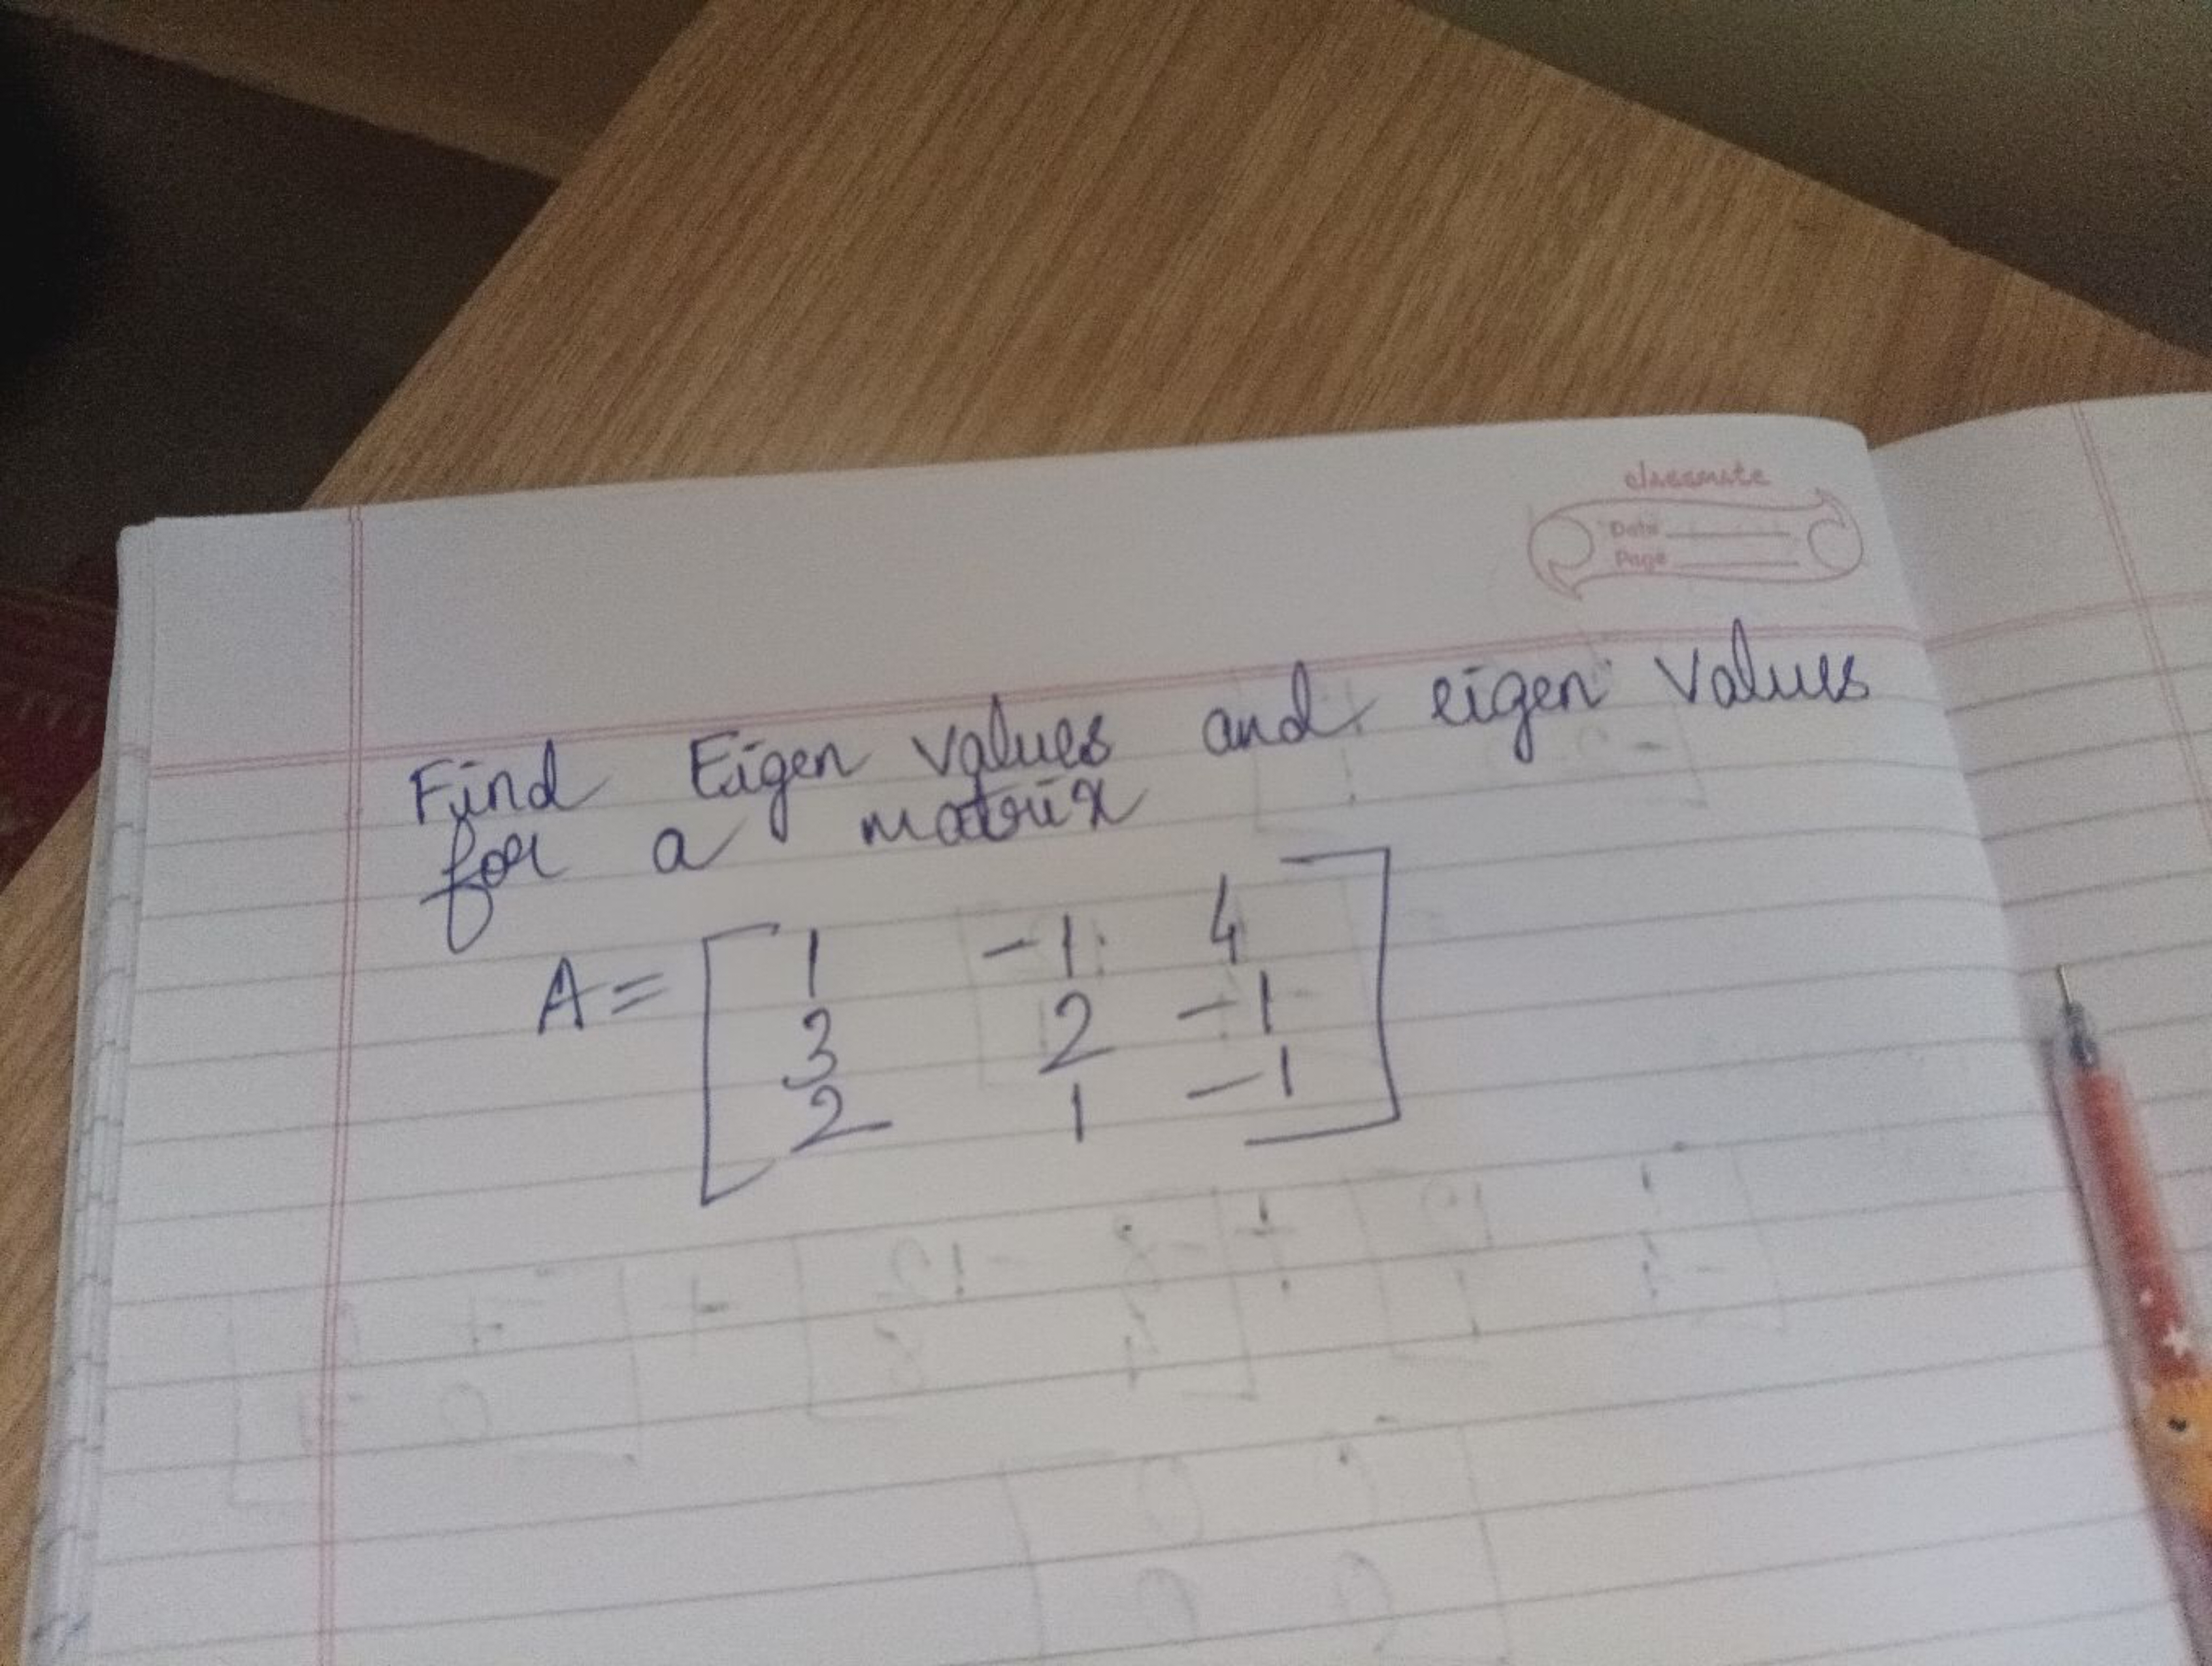 classmate
Date
Page
Find Eigen values and eigen values
for a matrix
A = [ 1 -1 4
3 2 -1
2 1 -1 ]